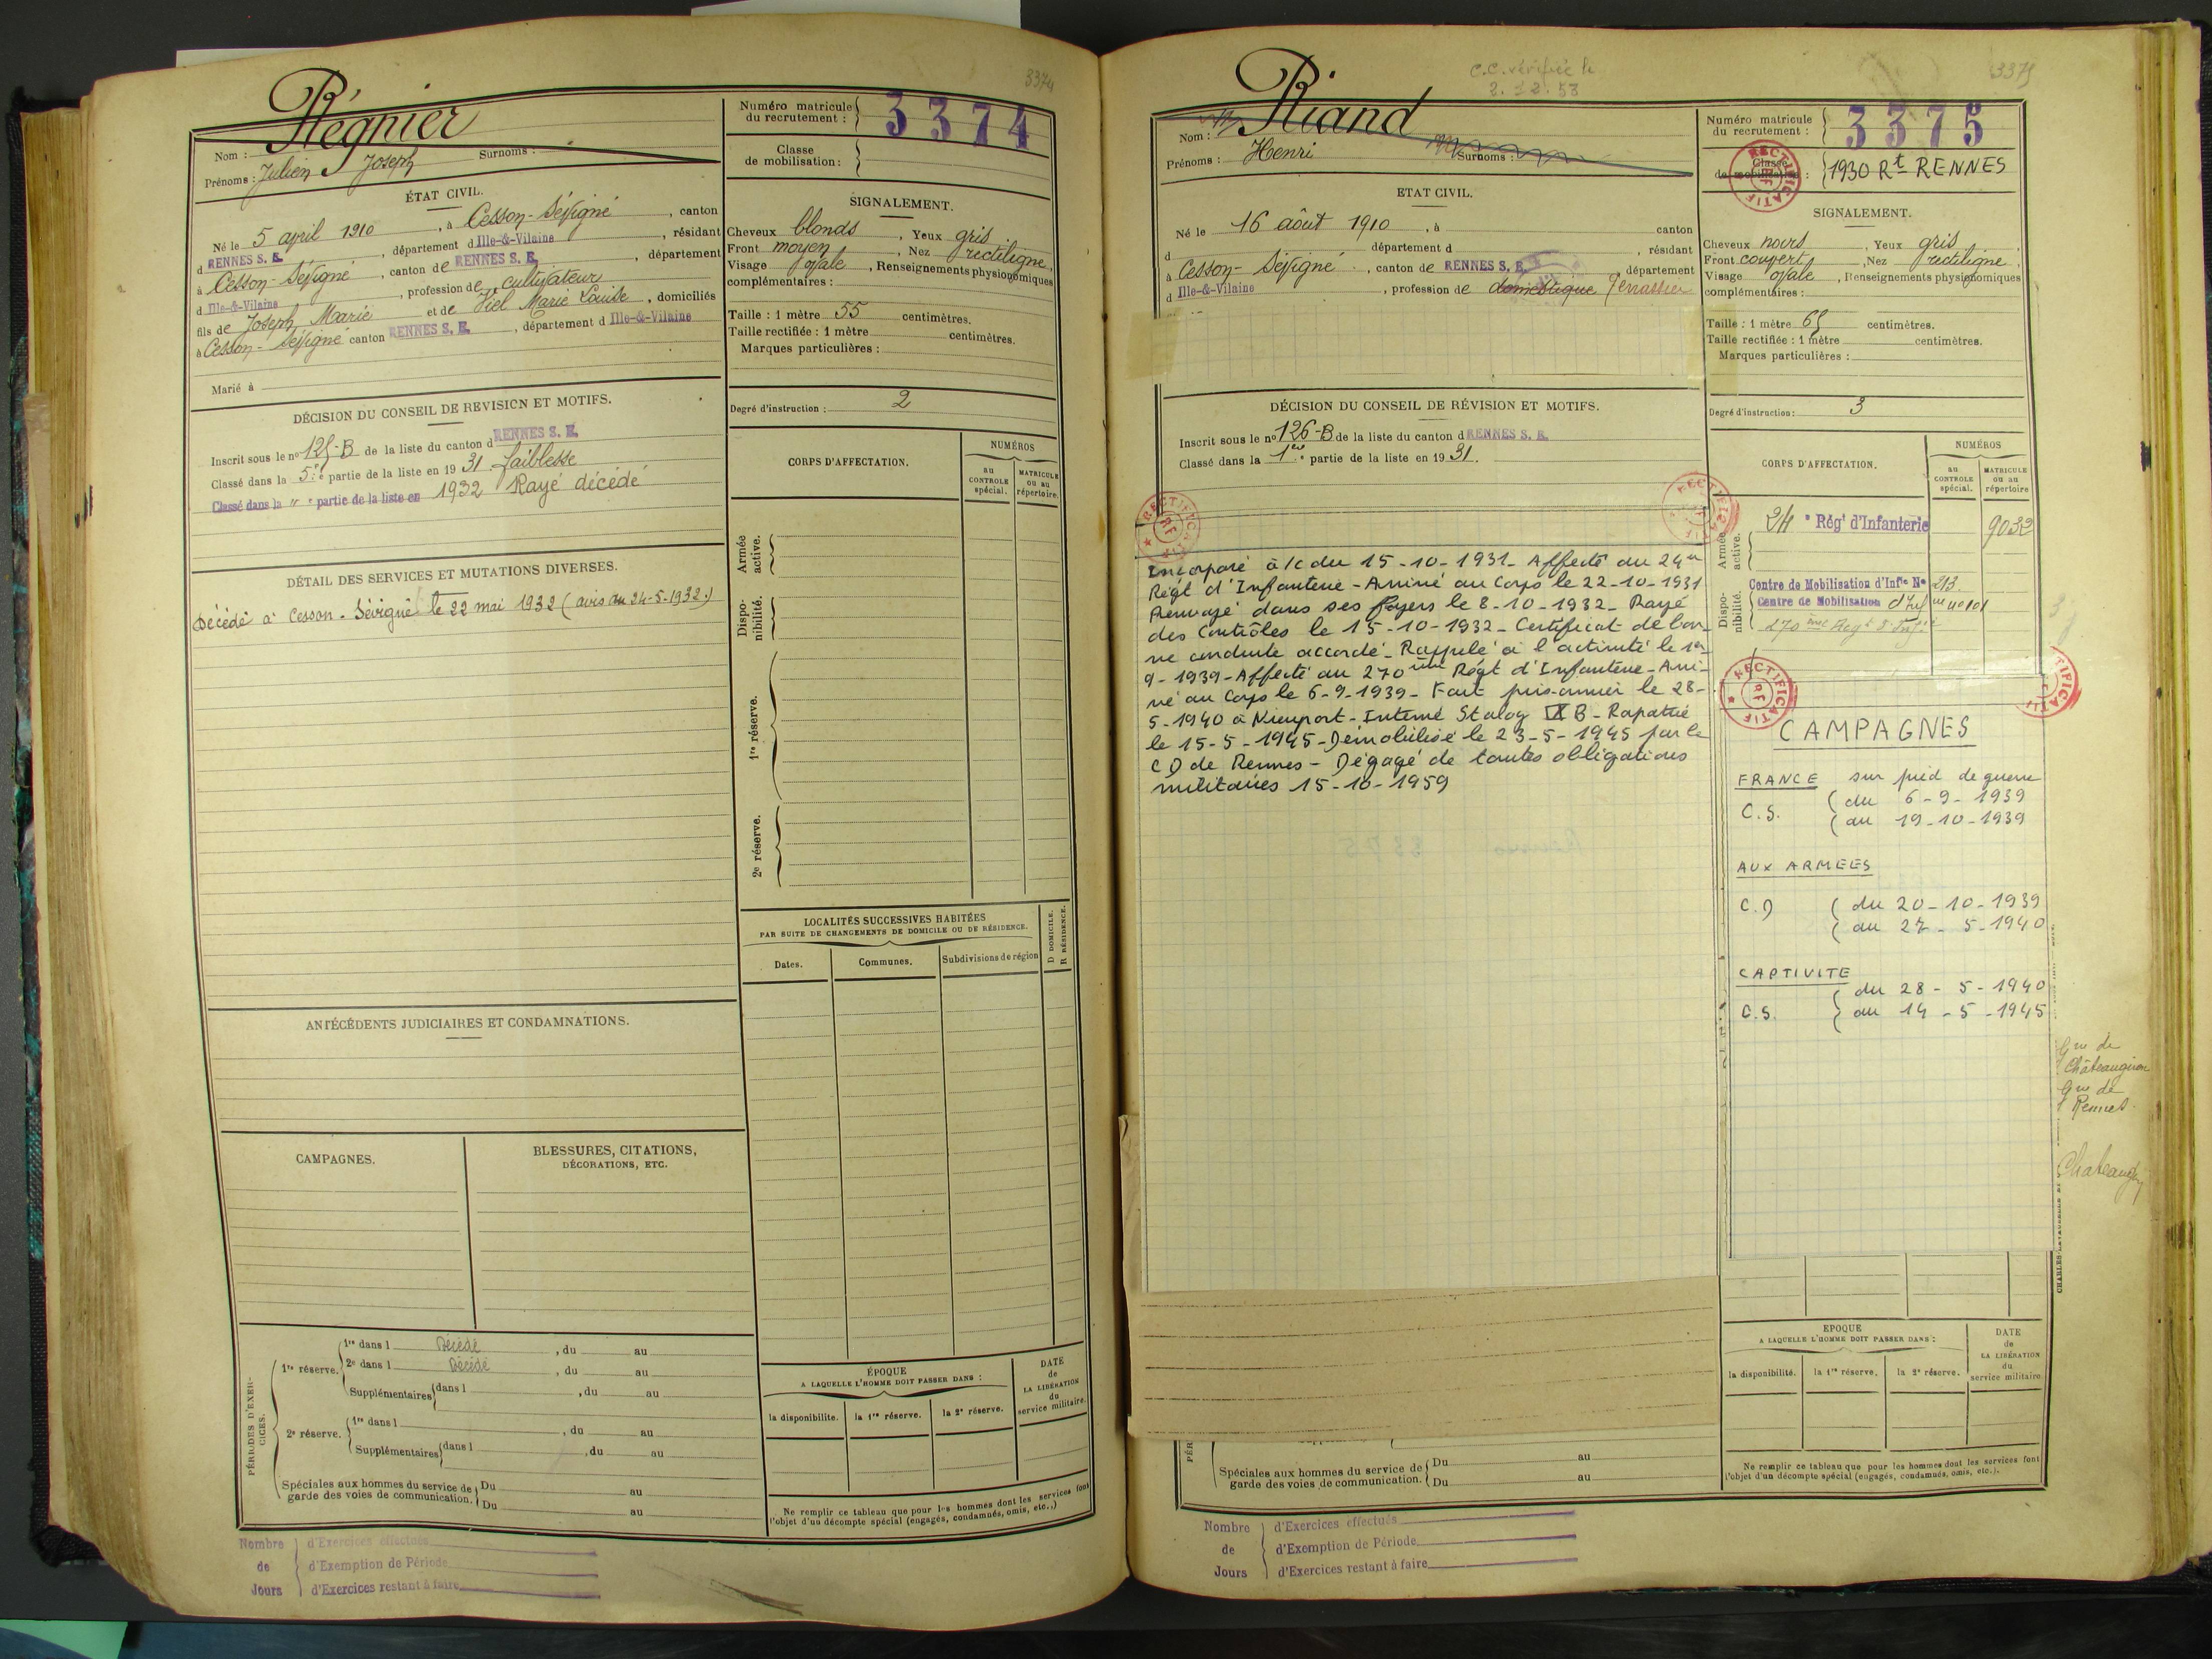 3374
Régnier
Nom :
Surnoms :
Prénoms : Julien Joseph
Numéro matricule du recrutement : 3374
Classe de mobilisation :
ÉTAT CIVIL.
Né le 5 avril 1910, à Cesson-Sévigné, canton
d RENNES S. E., département d Ille-&-Vilaine, résidant
à Cesson-Sévigné, canton de RENNES S. E., département
d Ille-&-Vilaine, profession de cultivateur
fils de Joseph Marie et de Viel Marie Louise, domiciliés
à Cesson-Sévigné canton RENNES S. E., département d Ille-&-Vilaine
Marié à
SIGNALEMENT.
Cheveux blonds, Yeux gris
Front moyen, Nez rectiligne,
Visage ovale, Renseignements physiognomiques
complémentaires :
Taille : 1 mètre 55 centimètres.
Taille rectifiée : 1 mètre centimètres.
Marques particulières :
Degré d'instruction : 2
DÉCISION DU CONSEIL DE REVISION ET MOTIFS.
Inscrit sous le n° 125-B de la liste du canton d RENNES S. E.
Classé dans la 5e partie de la liste en 1931. Faiblesse
Classé dans la " e partie de la liste en 1932 Rayé décédé
DÉTAIL DES SERVICES ET MUTATIONS DIVERSES.
Décédé à Cesson-Sévigné le 22 mai 1932 (avis du 24-5-1932.)
CORPS D'AFFECTATION.
NUMÉROS
au CONTROLE spécial.
MATRICULE ou au répertoire.
Armée active.
Disponibilité.
1re réserve.
2e réserve.
LOCALITÉS SUCCESSIVES HABITÉES
PAR SUITE DE CHANGEMENTS DE DOMICILE OU DE RÉSIDENCE.
Dates.
Communes.
Subdivisions de région
D DOMICILE.
R RÉSIDENCE.
ANTÉCÉDENTS JUDICIAIRES ET CONDAMNATIONS.
CAMPAGNES.
BLESSURES, CITATIONS,
DÉCORATIONS, ETC.
PÉRIODES D'EXERCICES.
1re réserve.
1re dans l Décédé, du au
2e dans l Décédé, du au
Supplémentaires dans l, du au
2e réserve.
1re dans l, du au
Supplémentaires dans l, du au
Spéciales aux hommes du service de garde des voies de communication.
Du au
Du au
ÉPOQUE
A LAQUELLE L'HOMME DOIT PASSER DANS :
la disponibilité.
la 1re réserve.
la 2e réserve.
DATE de LA LIBÉRATION du service militaire.
Ne remplir ce tableau que pour les hommes dont les services font
l'objet d'un décompte spécial (engagés, condamnés, omis, etc.,)
Nombre de Jours
d'Exercices effectués
d'Exemption de Période
d'Exercices restant à faire
C.C. vérifiée le
2.12.58
3375
Riand
Nom :
Surnoms :
Prénoms : Henri
Numéro matricule du recrutement : 3375
Classe de mobilisation : 1930 Rt RENNES
RECTIFICATIF
ETAT CIVIL.
Né le 16 août 1910, à canton
d département d, résidant
à Cesson-Sévigné, canton de RENNES S. E., département
d Ille-&-Vilaine, profession de domestique Terrassier
SIGNALEMENT.
Cheveux noirs, Yeux gris
Front couvert, Nez rectiligne,
Visage ovale, Renseignements physiognomiques
complémentaires :
Taille : 1 mètre 65 centimètres.
Taille rectifiée : 1 mètre centimètres.
Marques particulières :
Degré d'instruction : 3
DÉCISION DU CONSEIL DE RÉVISION ET MOTIFS.
Inscrit sous le n° 126-B de la liste du canton d RENNES S. E.
Classé dans la 1re partie de la liste en 1931.
RECTIFICATIF
RECTIFICATIF
Incorporé à/c du 15-10-1931. Affecté au 24e
Régt d'Infanterie - Arrivé au Corps le 22-10-1931
Renvoyé dans ses foyers le 8-10-1932 - Rayé
des Contrôles le 15-10-1932 - Certificat de bon-
ne conduite accordé - Rappelé à l'activité le 1er-
9-1939 - Affecté au 270ème Régt d'Infanterie - Arri-
vé au Corps le 6-9-1939 - Fait prisonnier le 28-
5-1940 à Nieuport - Interné Stalag IX B - Rapatrié
le 15-5-1945 - Démobilisé le 23-5-1945 par le
C D de Rennes - Dégagé de toutes obligations
militaires 15-10-1959
CORPS D'AFFECTATION.
NUMÉROS
au CONTROLE spécial.
MATRICULE ou au répertoire
Armée active.
24e Régt d'Infanterie 9032
Disponibilité.
Centre de Mobilisation d'Infie N° 213
Centre de Mobilisation d'Infie n° 101
270ème Régt d'Infie
RECTIFICATIF
RECTIFICATIF
CAMPAGNES
FRANCE sur pied de guerre
C.S. du 6-9-1939
au 19-10-1939
AUX ARMEES
C.D du 20-10-1939
au 27-5-1940
CAPTIVITE
C.S. du 28-5-1940
au 14-5-1945
Gie de
Châteaugiron
Gie de
Rennes
EPOQUE
A LAQUELLE L'HOMME DOIT PASSER DANS :
la disponibilité.
la 1re réserve.
la 2e réserve.
DATE de LA LIBÉRATION du service militaire
Spéciales aux hommes du service de garde des voies de communication.
Du au
Du au
Ne remplir ce tableau que pour les hommes dont les services font
l'objet d'un décompte spécial (engagés, condamnés, omis, etc.).
Nombre de Jours
d'Exercices effectués
d'Exemption de Période
d'Exercices restant à faire